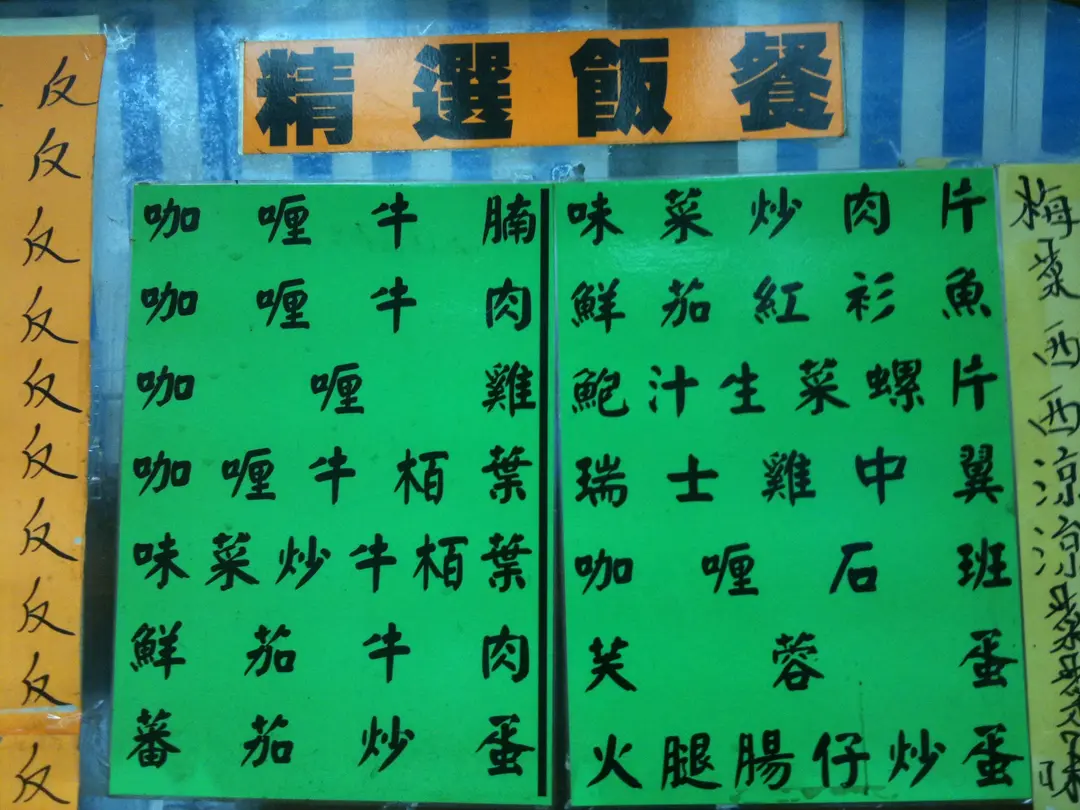 精選飯餐
咖喱牛腩
咖喱牛肉
咖喱雞
咖喱牛栢葉
味菜炒牛栢葉
鮮茄牛肉
蕃茄炒蛋
味菜炒肉片
鮮茄紅衫魚
鮑汁生菜螺片
瑞士雞中翼
咖喱石班
芙蓉蛋
火腿腸仔炒蛋
反
反
反
反
反
反
反
反
反
反
梅
菜
西
西
涼
涼
味